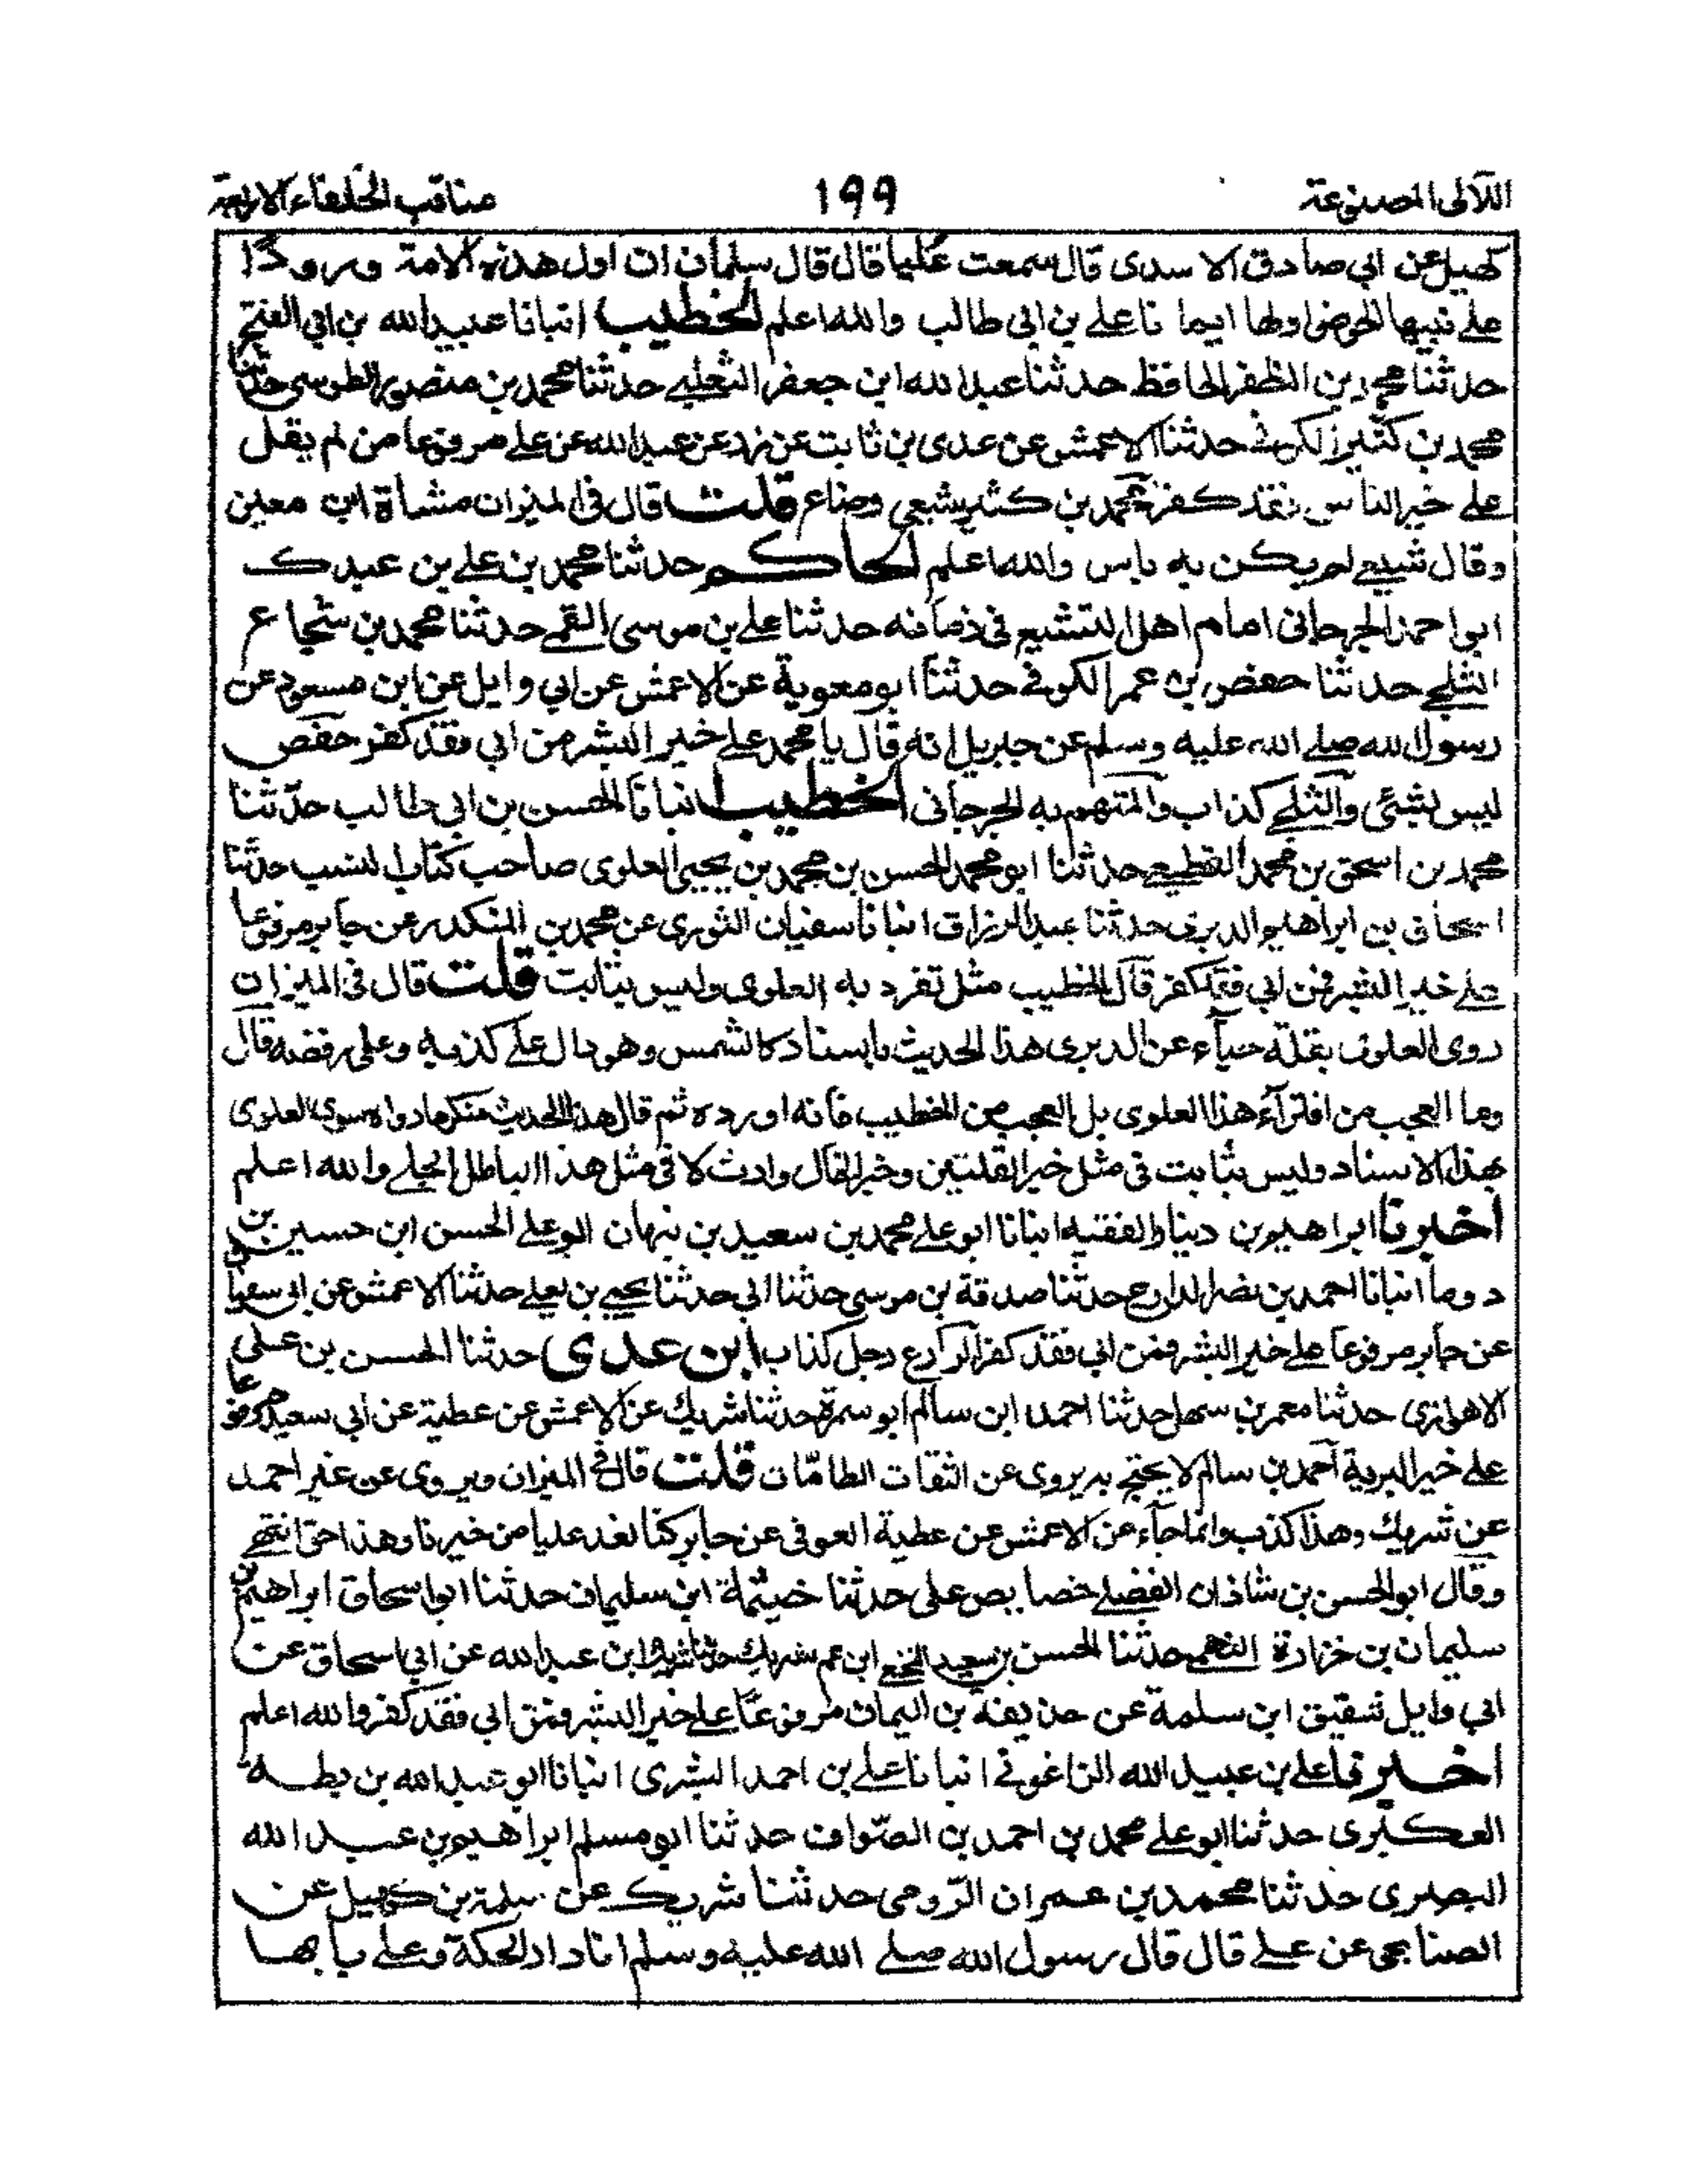 اللآلی المصنوعة ۱۹۹ مناقب الخلفاء الاربعة
کهیل عن ابی صادق الاسدی قال سمعت علیا قال قال سلمان ان اول هذه الامة ورودًا
علی نبیها الحوض اولها ایمانا علی بن ابی طالب والله اعلم الخطیب انبانا عبید الله بن ابی الفتح
حدثنا محمد بن المظفر الحافظ حدثنا عبد الله ابن جعفر الثعلبی حدثنا محمد بن منصور الطوسی حدثنا
محمد بن کثیر الکوفی حدثنا الاعمش عن عدی بن ثابت عن زر عن عبد الله عن علی مرفوعا من لم یقل
علی خیر الناس فقد کفر محمد بن کثیر شیعی وضاع قلت قال فی المیزان مشاة ابن معین
وقال شیعی لم یکن به باس والله اعلم الحاکم حدثنا محمد بن علی بن عبدک
ابو احمد الجرجانی امام اهل التشیع فی زمانه حدثنا علی بن موسی القمی حدثنا محمد بن شجاع
الثلجی حدثنا حفص بن عمر الکوفی حدثنا ابو معویة عن الاعمش عن ابی وایل عن ابن مسعود عن
رسول الله صلی الله علیه وسلم عن جبریل انه قال یا محمد علی خیر البشر من ابی فقد کفر حفص
لیس بشئی والثلجی کذاب والمتهم به الجرجانی الخطیب انبانا الحسن بن ابی طالب حدثنا
محمد بن اسحق بن محمد القطیعی حدثنا ابو محمد الحسن بن محمد بن یحیی العلوی صاحب کتاب النسب حدثنا
اسحاق بن ابراهیم الدبری حدثنا عبد الرزاق انبانا سفیان الثوری عن محمد بن المنکدر عن جابر مرفوعا
علی خیر البشر فمن ابی فقد کفر قال الخطیب تفرد به العلوی ولیس بثابت قلت قال فی المیزان
روی العلوی بقلة حیاء عن الدبری هذا الحدیث باسناد کالشمس وهو دال علی کذبه وعلی رفضه قال
وما العجب من افتراء هذا العلوی بل العجب من الخطیب فانه اورده ثم قال هذا الحدیث منکر ما رواه سوی العلوی
بهذا الاسناد ولیس بثابت فی مثل خبر القلتین وخبر الخال وارث لا فی مثل هذا الباطل الجلی والله اعلم
اخبرنا ابراهیم بن دینار الفقیه انبانا ابو علی محمد بن سعید بن نبهان ابو علی الحسن ابن حسین بن
دوما انبانا احمد بن نصر الذارع حدثنا صدقة بن موسی حدثنا ابی حدثنا یحیی بن یعلی حدثنا الاعمش عن ابی سفیان
عن جابر مرفوعا علی خیر البشر فمن ابی فقد کفر الذارع رجل کذاب ابن عدی حدثنا الحسن بن علی
الاهوازی حدثنا معمر بن سهل حدثنا احمد ابن سالم ابو سمرة حدثنا شریک عن الاعمش عن عطیة عن ابی سعید مرفوعا
علی خیر البریة احمد بن سالم لا یحتج به یروی عن الثقات الطامّات قلت قال فی المیزان ویروی عن غیر احمد
عن شریک وهذا کذب وانما جاء عن الاعمش عن عطیة العوفی عن جابر کنا نعد علیا من خیرنا وهذا حق انتهی
وقال ابو الحسن بن شاذان الفضلی خصایص علی حدثنا خیثمة ابن سلیمان حدثنا ابو اسحاق ابراهیم بن
سلیمان بن خزازة النهمی حدثنا الحسن بن سعید النخعی ابن عم شریک حدثنا شریک ابن عبد الله عن ابی اسحاق عن
ابی وایل شقیق ابن سلمة عن حذیفة بن الیمان مرفوعًا علی خیر البشر فمن ابی فقد کفر والله اعلم
اخبرنا علی بن عبید الله الزاغونی انبانا علی بن احمد البشری انبانا ابو عبد الله بن بطه
العکبری حدثنا ابو علی محمد بن احمد بن الصّواف حدثنا ابو مسلم ابراهیم بن عبد الله
البصری حدثنا محمد بن عمران الرّومی حدثنا شریک عن سلمة بن کهیل عن
الصنابحی عن علی قال قال رسول الله صلی الله علیه وسلم انا دار الحکمة وعلی بابها